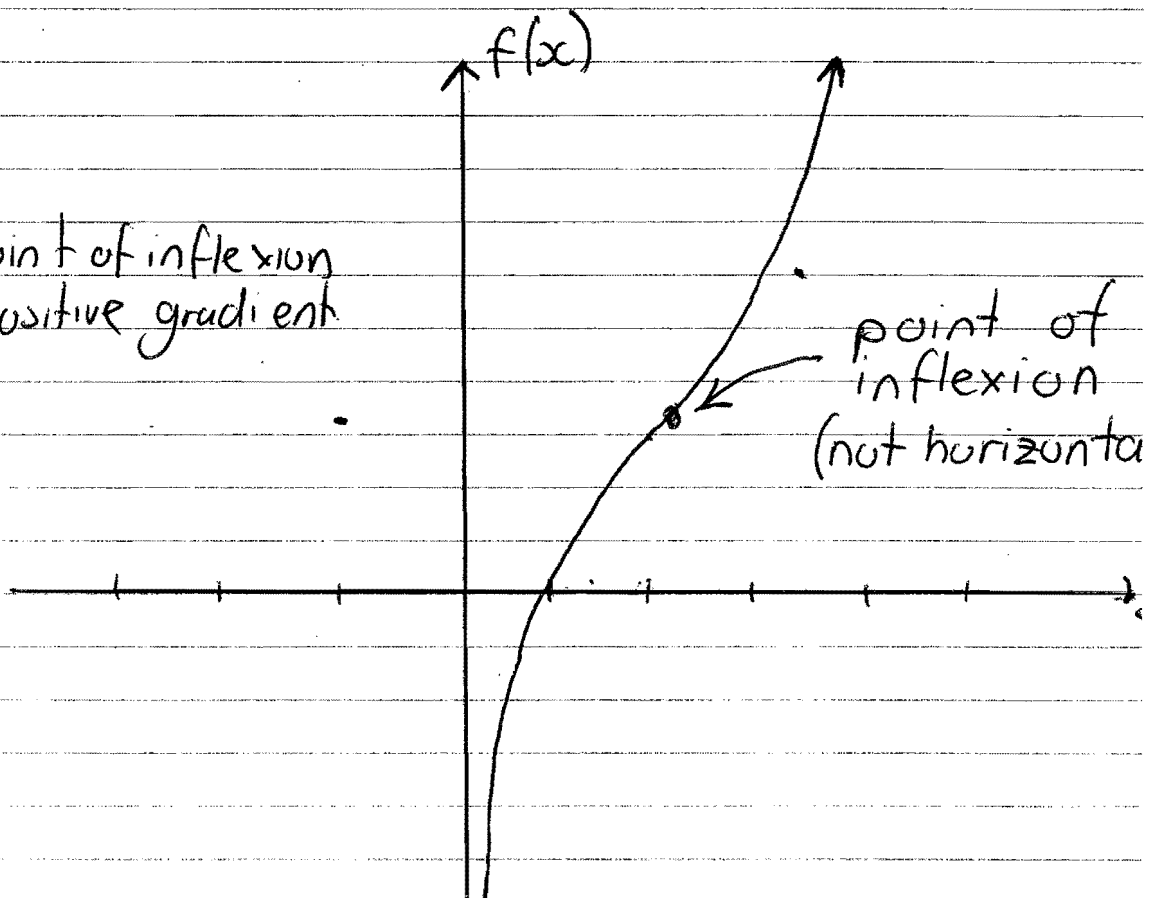 f(x)
oint of inflexion
ositive gradient
point of
inflexion
(not horizonta